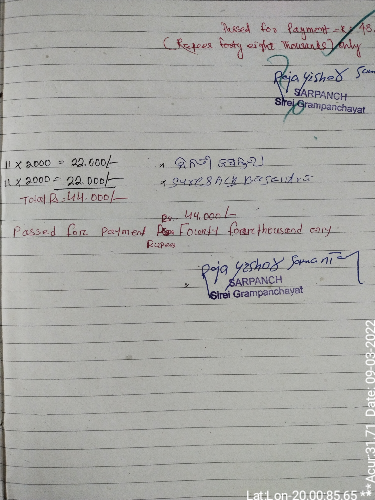 Passed for Payment Rs. 48
(Rupees forty eight thousands) only
SARPANCH
Sirei Grampanchayat
11 X 2000 = 22.000/-
11 X 2000 = 22.000/-
Total Rs. 44.000/-
Rs. 44.000/-
Passed for payment Fourty four thousand only
Rupees
SARPANCH
Sirei Grampanchayat
Lat Lon-20.00:85.65
***Acur:31.71 Date: 09-03-2022